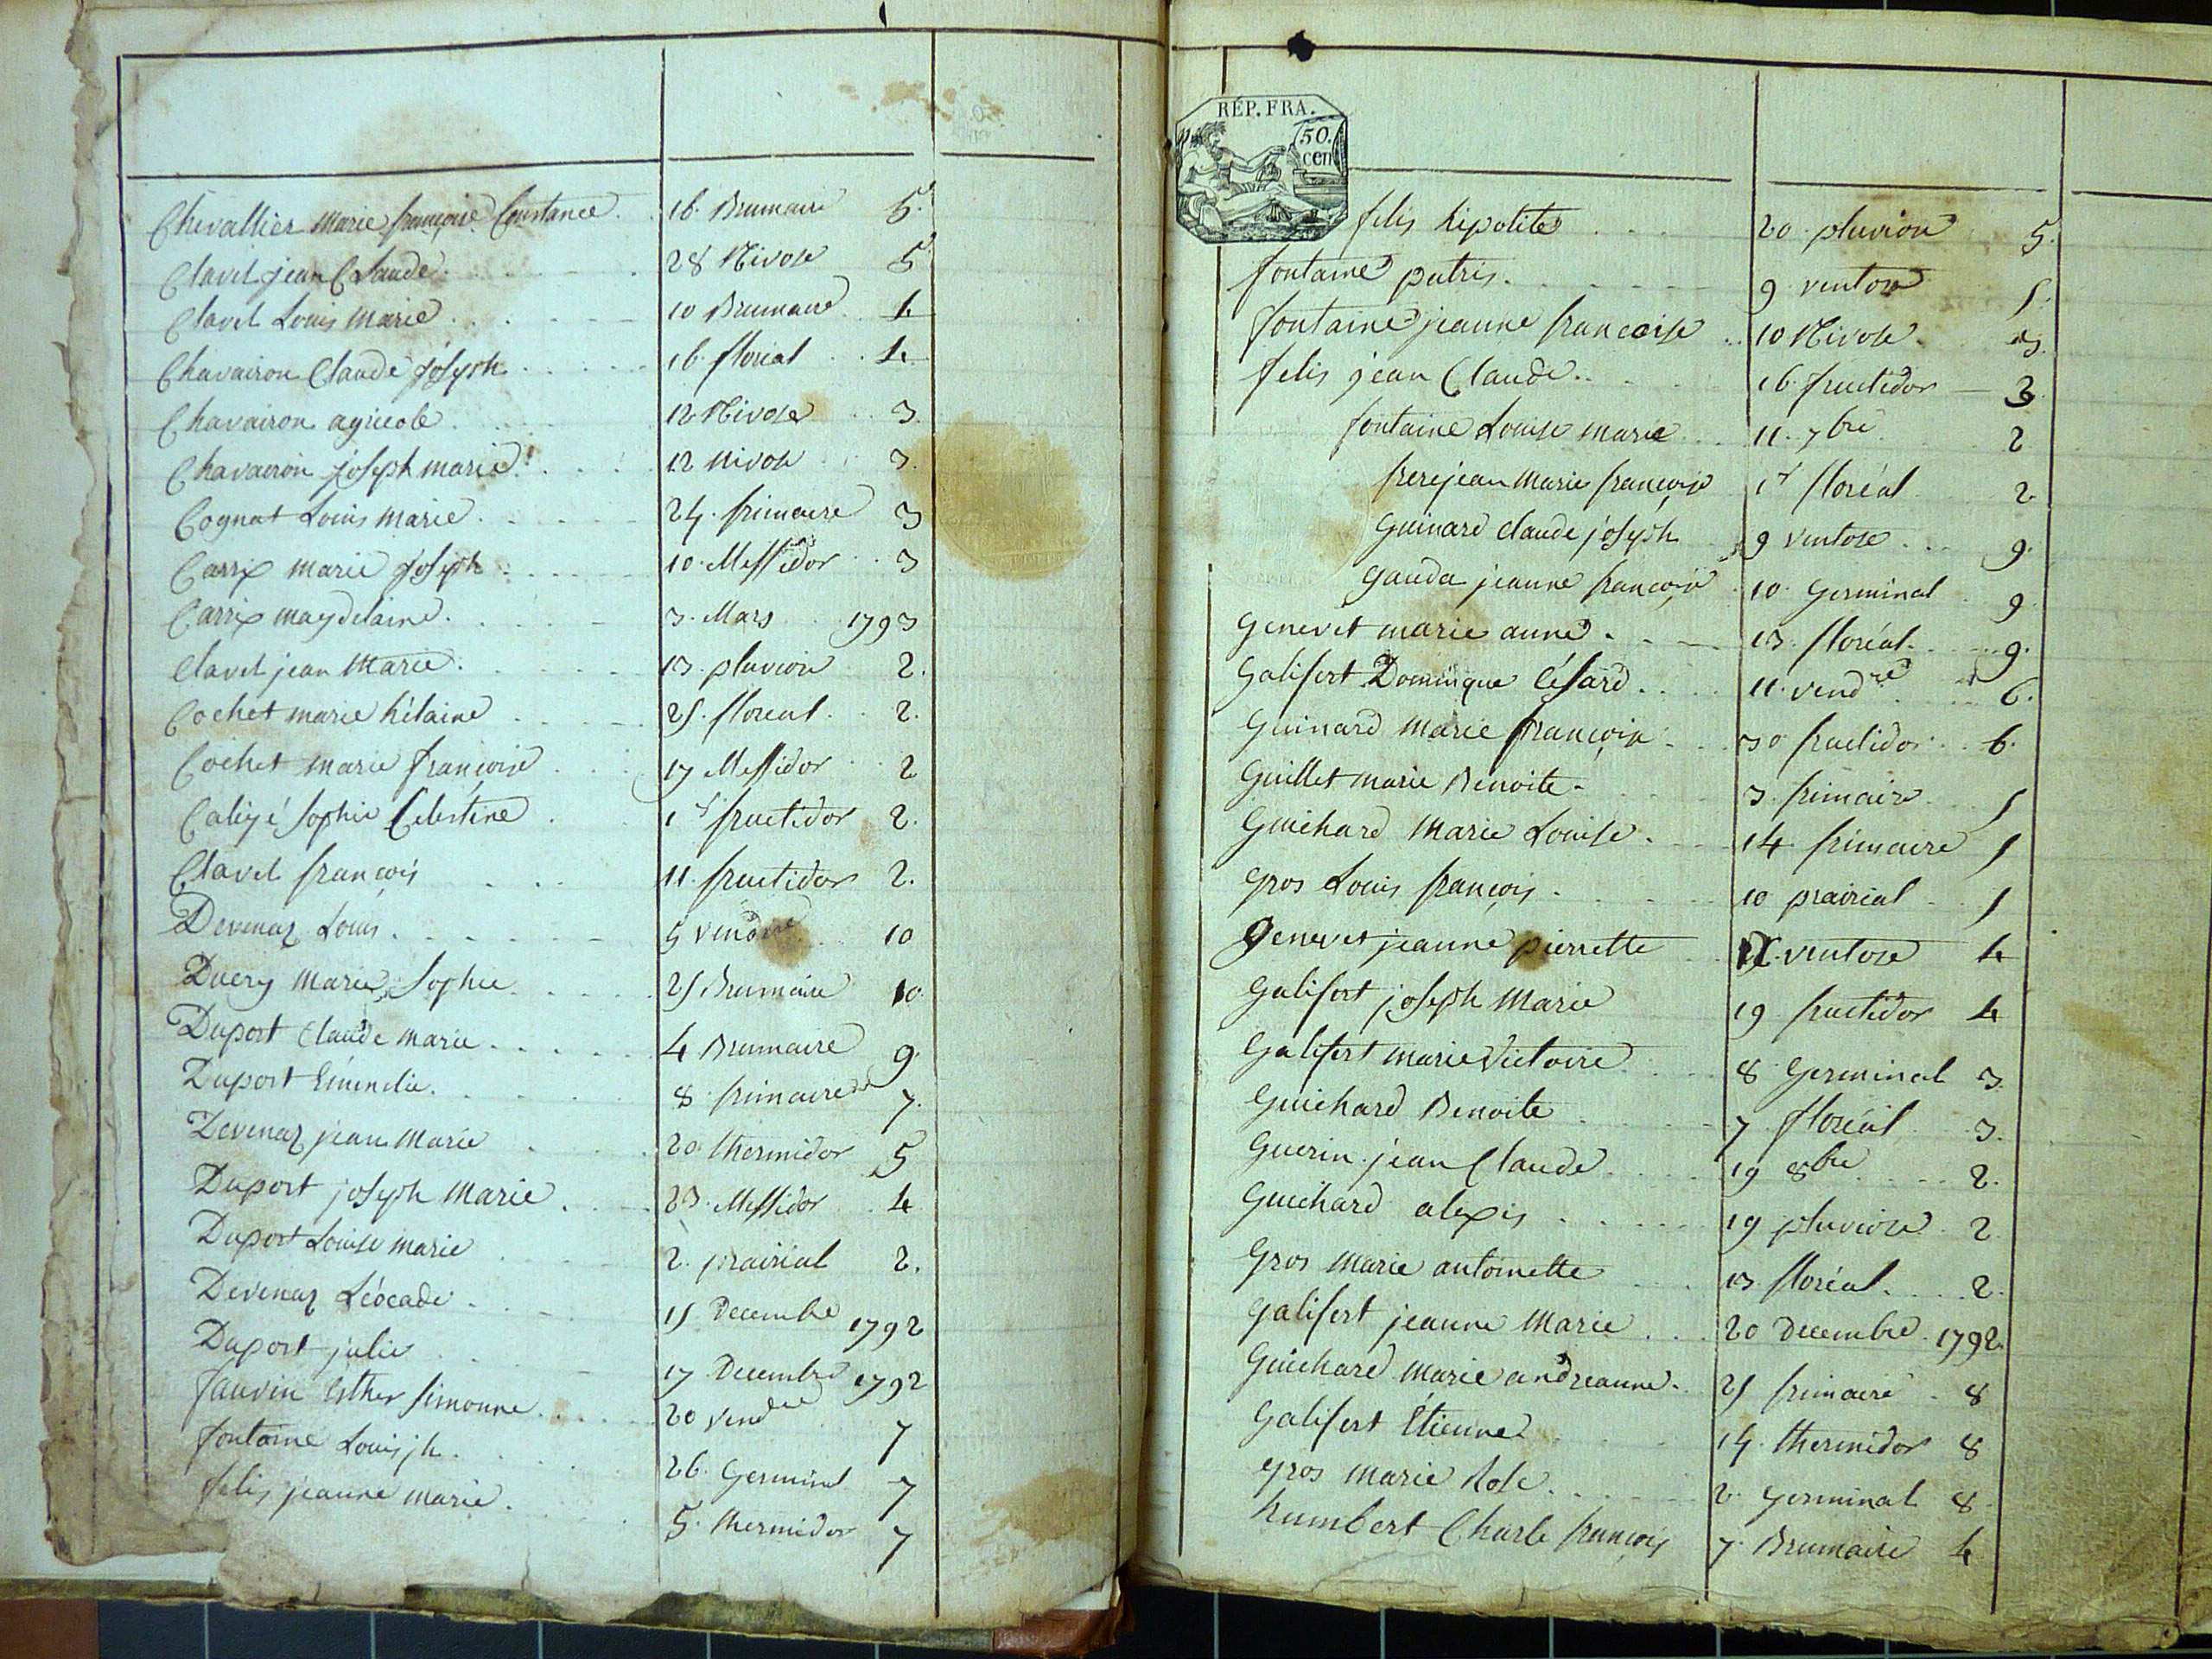 Chevallier marie françoise Constance. 16. Brumaire 5.
Clavel jean Claude. 28 Nivose 5
Clavel Louis marie 10 Brumaire 4
Chavairon Claude joseph 16. floreal 4
Chavairon agricole 12 Nivose 3.
Chavairon joseph marie 12 nivose 3.
Cognat Louis marie. 24. frimaire 3
Carrix marie joseph 10. Messidor 3
Carrix magdelaine. 3. Mars 1793
Clavel jean Marie. 13. pluviose 2.
Cochet marie hélaine 25. floreal 2.
Cochet marie françoise 17 Messidor 2
Sophie Celestine 1r fructidor 2.
Clavel françois 11. fructidor 2.
Devenaz Louis. 5 vendre 10
Ducry Marie Sophie. 25 Brumaire 10
Duport Claude marie. 4 Brumaire 9.
Duport 8 frimaire 7.
Devenaz jean Marie 20. thermidor 5
Duport joseph Marie. 23. Messidor 4
Duport Louise marie 2. prairial 2.
Devenaz Léocade. 15 Decembre 1792
Duport julie 17 Decembre 1792
fauvin Esther simonne. 20 vendre 7
fontaine Louis jh. 26. Germinal 7
felis jeanne marie. 5. thermidor 7
RÉP. FRA.
50. cen
felis hipolite 20 pluviose 5.
fontaine patris. 9 ventose 5.
fontaine jeanne francoise 10 Nivose. 3.
felis jean Claude. 16. fructidor 3.
fontaine Louise marie 11. 7bre 2
frerejean Marie françoise 1r floréal 2
Guinard Claude joseph 9 ventose 9.
Gauda jeanne françoise 10. Germinal 9
Genevet marie anne. 13. floréal. 9.
Galifert Dominique Césard. 11. vendre 6.
Guinard marie françoise 30 fructidor 6.
Guillet marie Benoite. 3. frimaire 5
Guichard Marie Louise. 14 frimaire 5
gros Louis françois. 10 prairial 5
Genevet jeanne pierrette ventose 4
Galifert joseph Marie 19 fructidor 4
Galifert marie Victoire 8 Germinal 3.
Guichard Benoite 7 floréal 3.
Guerin jean Claude 19 8bre 2.
Guichard alexis 19 pluviose 2
Gros Marie antoinette 13 floréal. 2.
galifert jeanne Marie 20 Decembre 1792.
Guichard Marie andreanne. 25 frimaire 8
Galifert Etienne 14. thermidor 8
gros marie Rose. 2. germinal 8
humbert Charle françois 7. Brumaire 4